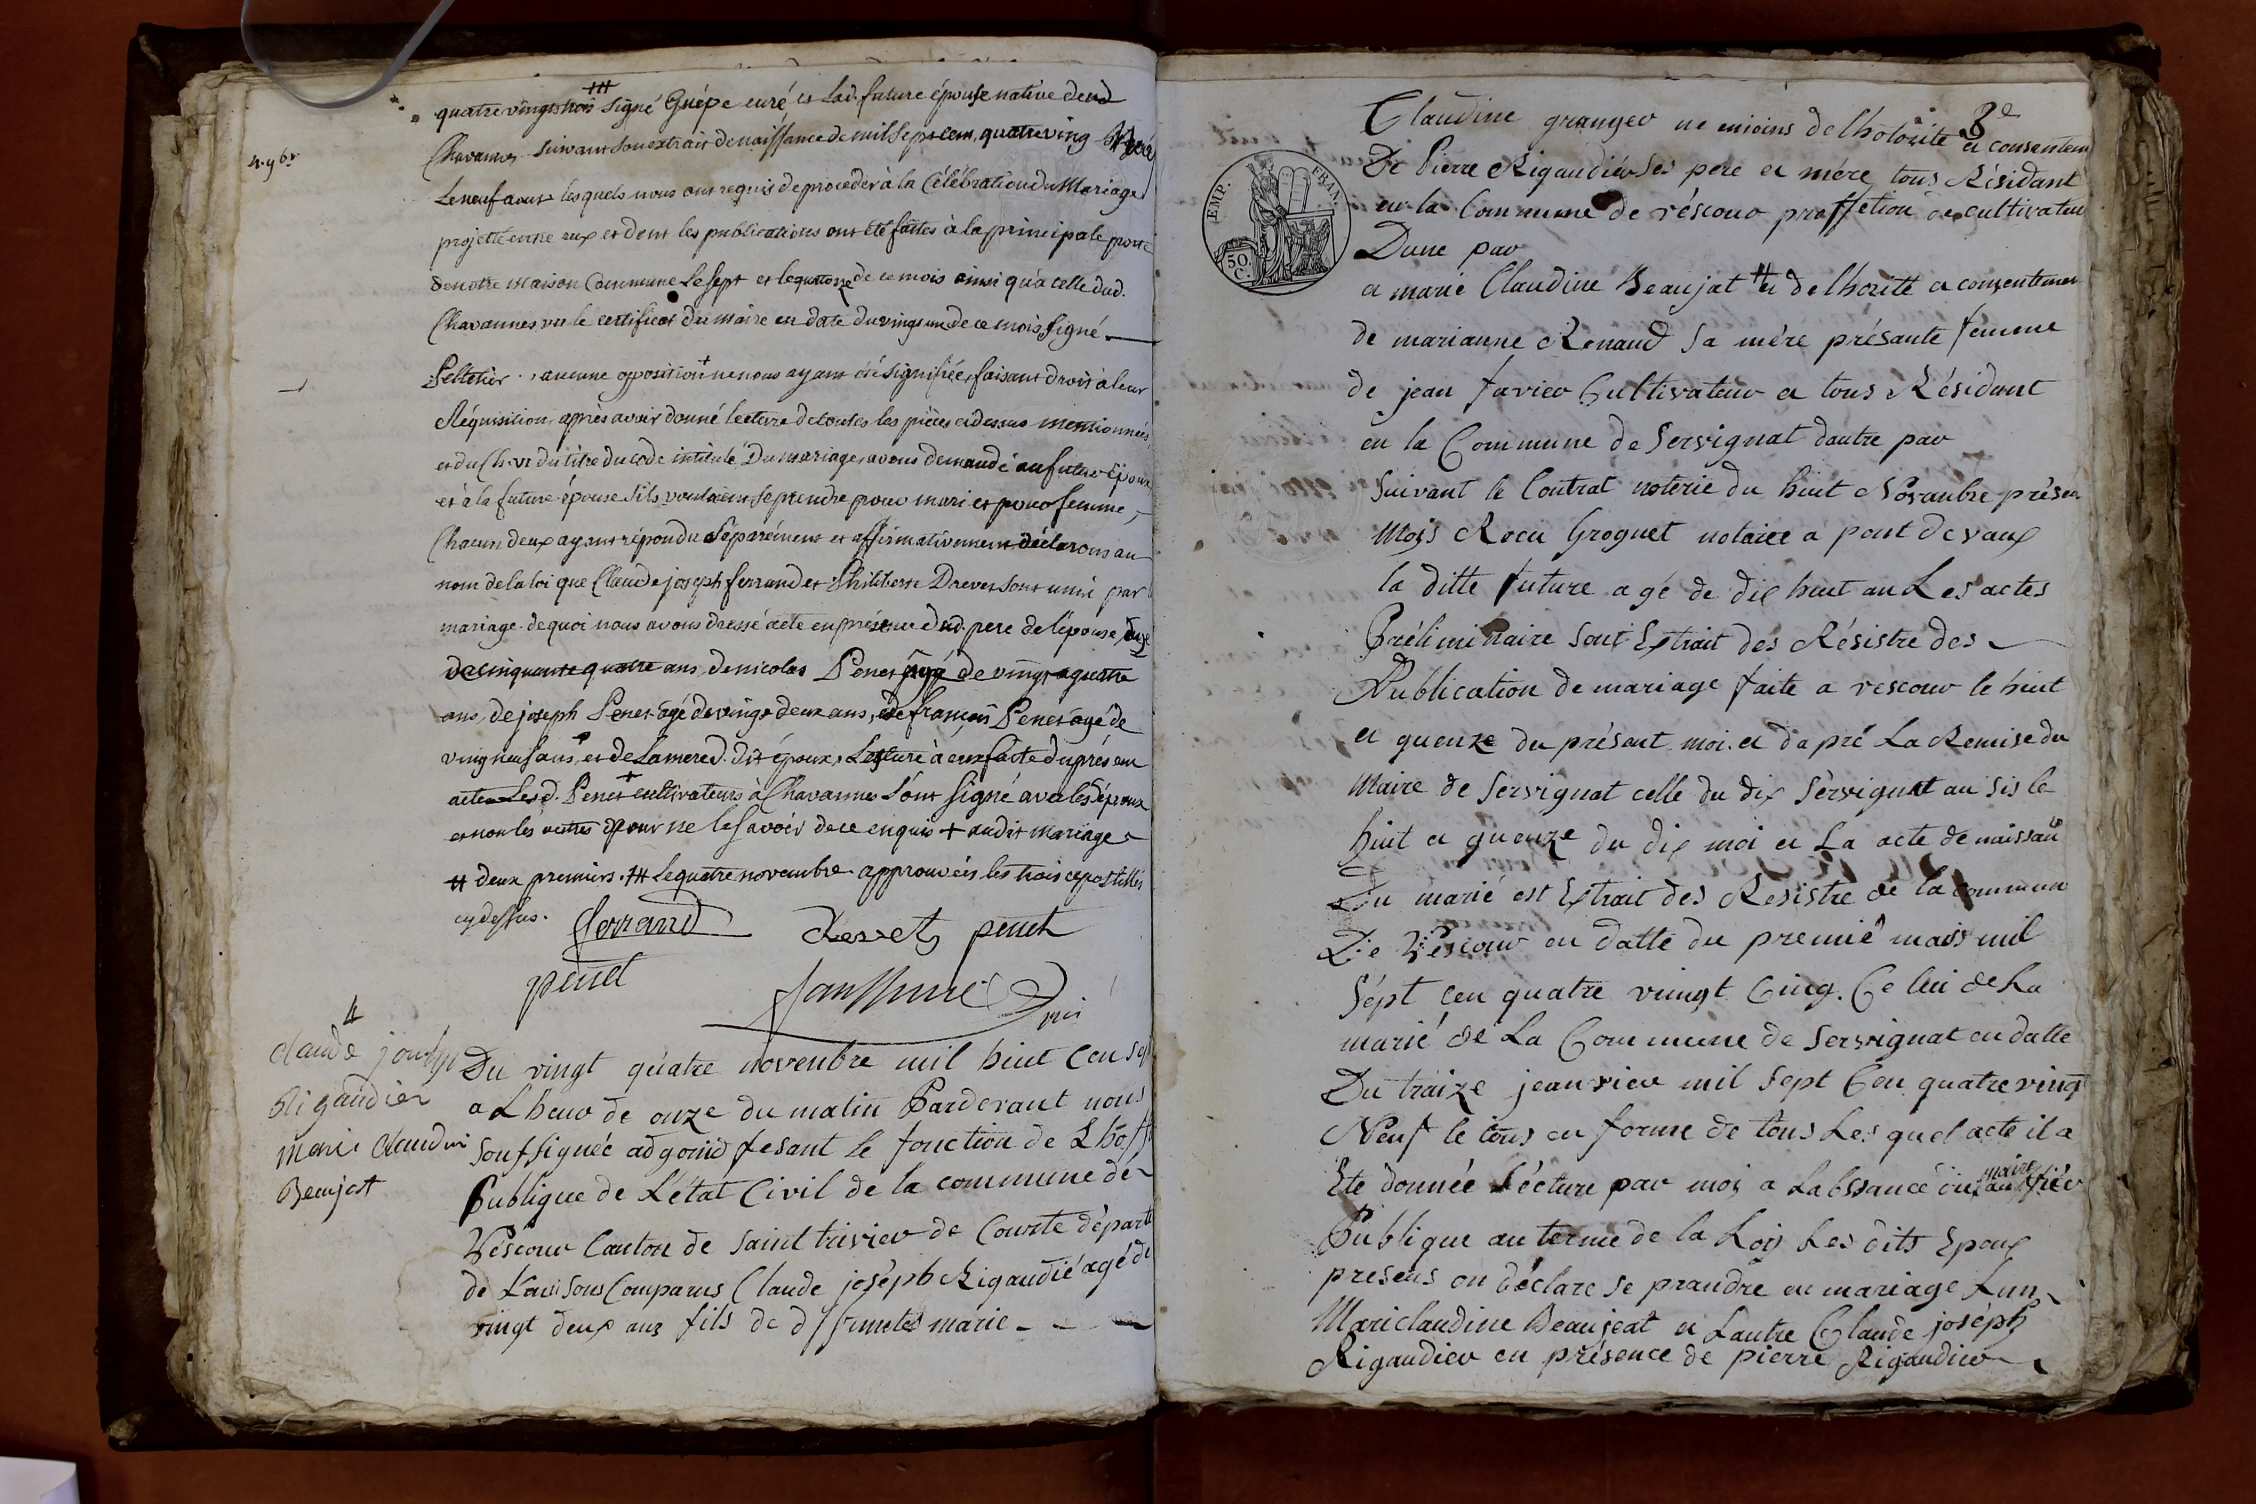 quatre vingt trois signé Guépe curé et lad. future épouse native dud
4. 9br
Chavannes suivant son extrait de naissance de mil sept cent quatre ving
Le neuf aout lesquels nous ont requis de proceder à la Célébration du Mariage
projetté entre eux et dont les publications ont été faites à la principale porte
de notre maison Commune le sept et le quatorze de ce mois ainsi qu'a celle dud.
Chavannes vu le certificat du maire en date du vingt un de ce mois, signé
Pelletier. aucune opposition + ne nous ayant été signifiée, faisant droit à leur
Réquisition, après avoir donné lecture de toutes les pièces cidessus mentionnées
et du Ch. VI du titre du code intitulé Du mariage, avons demandé au futur époux
et à la future épouse s'ils vouloient se prendre pour mari et pour femme,
Chacun deux ayant répondu séparément et affirmativement déclarons au
nom de la loi que Claude joseph ferrand et Philiberte Drevet sont unis par
mariage. de quoi nous avons dressé acte en présence dud. pere de l'épouse, agé
de cinquante quatre ans, de nicolas Penet agé de vingt quatre
ans, de joseph Penet agé de vingt deux ans, de françois Penet agé de
vingt neuf ans, et de la mere d. dit époux, Lecture à eux faite du présent
acte Les d. Penet cultivateurs à Chavannes l'ont signé avec les époux
et non les autres pour ne le savoir de ce enquis + audit mariage
# deux premiers. ### le quatre novembre approuvées les trois apostilles
cy dessus.
ferrand Drevet penet
penet
4
Claude joseph
Rigaudier
marie Claudine
Beaujat
Du vingt quatre novenbre mil huit Cen sept
a Lheur de onze du matin Pardevant nous
soussignée adgoind fesant le fonction de Lhoff
Publique de L'état Civil de la commune de
Véscour Canton de Saint trivier de Courte départ
de Lain sons Comparus Claude joséph Rigaudié agé de
vingt deux ans fils de deffuncte marie
EMP. FRAN.
50 C.
8e
Claudine granger ne enioins de lhotorité et consentem
De Pierre Rigaudiér ses pere et mére tous Résidant
en la Commune de réscour proffetion de cultivateu
Dune par
et marie Claudine Beaujat # et de lhorité et consentemen
de marianne Renaud sa mére présante femme
de jean favier Cultivateur et tous Résidant
en la Commune de Servignat dautre par
Suivant le Contrat noterie du huit Novanbre présen
Mois Recu Groguet notaire a pont de vaux
la ditte future agé de dix huit an Les actes
Préliminaire sont Extrait des Résistre des
Publication de mariage faite a véscour le huit
et quenze du présant moi et daprè La Remise du
Maire de Servignat celle du dix Sérvignat au sis le
huit et quenze du dix moi et La acte de naissan
Du marié est Extrait des Resistre de la commune
De Véscour en datte du premié mais mil
sépt Cen quatre vuingt Cinq. Ce lui de La
marié de La Commune de Servignat en datte
Du traize jeanvier mil sept Cen quatre ving
Neuf le tous en forme de tous Les quel acte il a
Eté donnée Lécture par moi a Labssance du maire offiér
Publique au terme de la Loi Les dits Epoux
presens on déclare se prandre en mariage Lun
Mariclaudine Beaujeat et Lautre Claude joséph
Rigaudier en présence de pierre Rigaudier